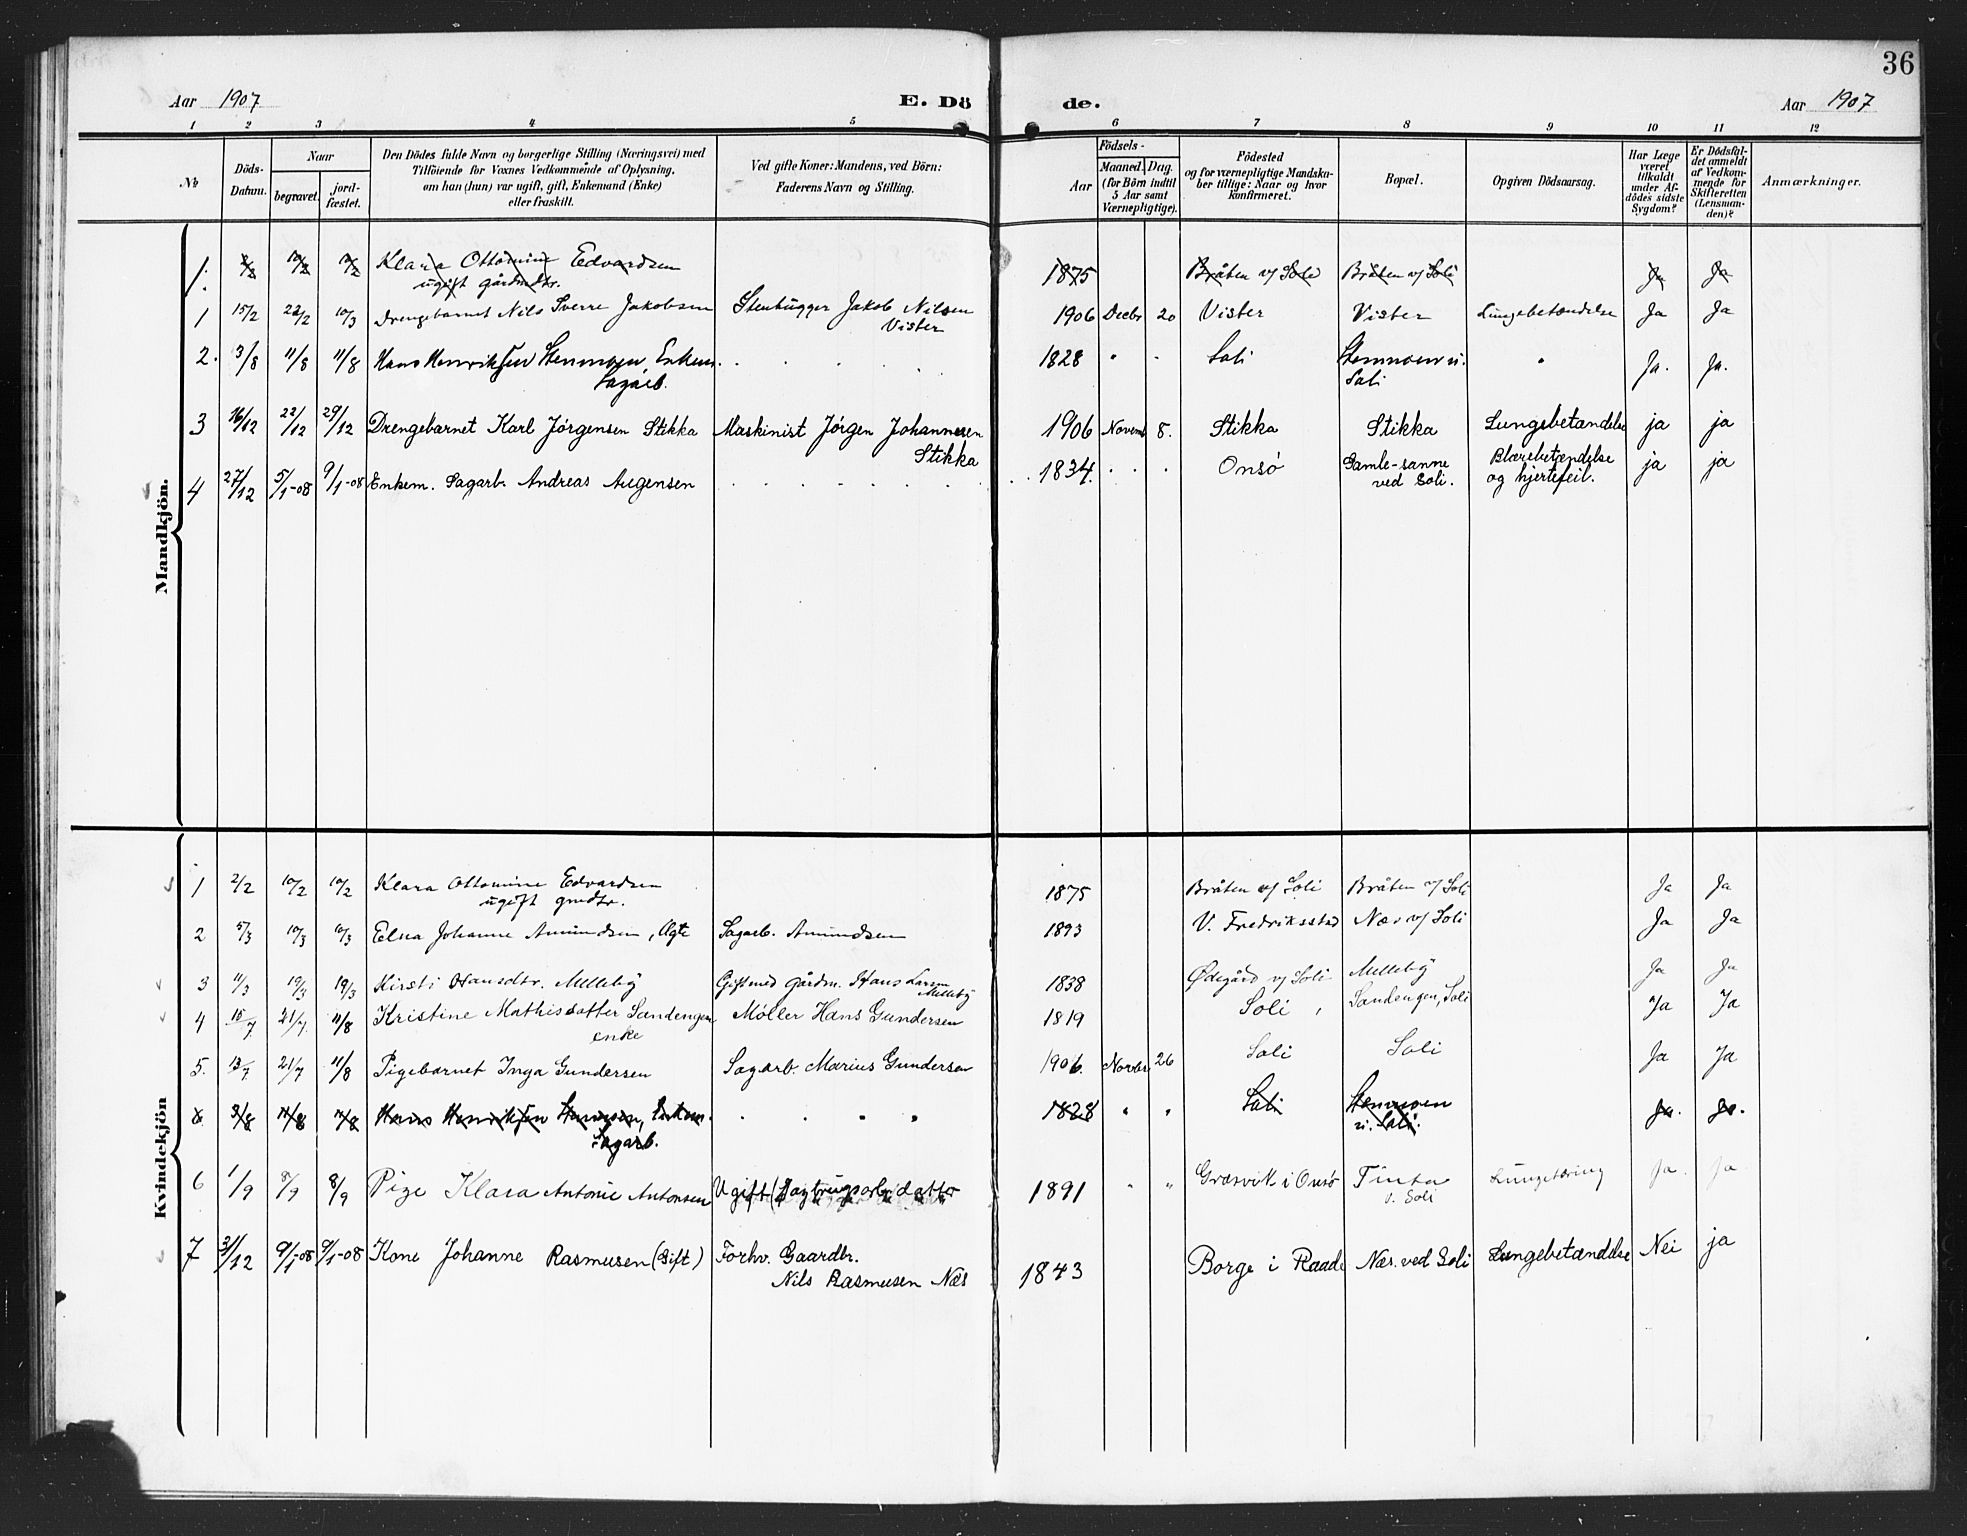 36
Aar 1907 E. Dö de. Aar 1907
1 2 3 4 5 6 7 8 9 10 11 12
No
Döds-Datum.
Naar
begravet.
jord-fæstet.
Den Dödes fulde Navn og borgerlige Stilling (Næringsvei) med
Tilföiende for Voxnes Vedkommende af Oplysning,
om han (hun) var ugift, gift, Enkemand (Enke)
eller fraskilt.
Ved gifte Koner: Mandens, ved Börn:
Faderens Navn og Stilling.
Födsels-
Aar
Maaned. Dag.
(for Börn indtil
5 Aar samt
Værnepligtige).
Födested
og for værnepligtige Mandska-
ber tillige: Naar og hvor
konfirmeret.
Bopæl.
Opgiven Dödsaarsag.
Har Læge
været
tilkaldt
under Af-
dödes sidste
Sygdom?
Er Dödsfal-
det anmeldt
af Vedkom-
mende for
Skifteretten
(Lensman-
den)?
Anmærkninger.
Mandkjön.
1. 2/2 10/2 10/2 Klara Ottomine Edvardsen 1875 Bråten v/ Soli Bråten v/ Soli Ja Ja
ugift gårdmdtr.
1 15/2 22/2 10/3 Drengebarnet Nils Sverre Jakobsen Stenhugger Jakob Nilsen 1906 Decbr 20 Vister Vister Lungebetændelse Ja Ja
Vister
2. 3/8 11/8 11/8 Hans Henriksen Stenmoen, Enkem. 1828 " " Soli Stenmoen u. " Ja. Ja.
Sagarb. Soli
3 16/12 22/12 29/12 Drengebarnet Karl Jørgensen Stikka Maskinist Jørgen Johannesen 1906 Novemb 8. Stikka Stikka Lungebetændelse ja ja
Stikka
4 27/12 5/1-08 9/1-08 Enkem. Sagarb. Andreas Augensen 1834. Onsø Gamle-sanne Blærebetændelse ja ja
ved Soli. og hjertefeil.
Kvindekjön
1 2/2 10/2 10/2 Klara Ottomine Edvardsen 1875 Bråten v/ Soli Bråten v/ Soli Ja Ja
ugift gmdtr.
2 5/3 10/3 10/3 Elna Johanne Amundsen, Ugte Sagarb. Amundsen 1893 V. Fredriksstad Næs v/ Soli Ja Ja
3 11/3 19/3 19/3 Kirsti Hansdtr. Melleby Gift med gårdm. Hans Larsen 1838 Ødegård v/ Soli Melleby Ja Ja
Melleby
4 15/7 21/7. 11/8 Kristine Mathisdatter Sandengen Møller Hans Gundersen 1819 Soli, Sandengen, Soli Ja Ja
enke
5. 13/7 21/7 11/8 Pigebarnet Inga Gundersen Sagarb. Marius Gundersen 1906. Novbr. 26 Soli Soli Ja Ja
6. 3/8 11/8 11/8 Hans Henriksen Stenmoen, Enkem. " " 1828 " " Soli Stenmoen Ja. Ja.
Sagarb. u. Soli.
6 1/9 8/9 8/9 Pige Klara Antonie Antonsen Ugift (Sagbrugsarb. datter 1891 " " Græsvik i Onsø Tinta Lungetæring ja. ja
v. Soli
7 31/12 9/1-08 9/1-08 Kone Johanne Rasmusen (Gift) Forhv. Gaardbr. 1843 Borge i Raade Næs. ved Soli Lungebetændelse Nei ja
Nils Rasmusen Næs